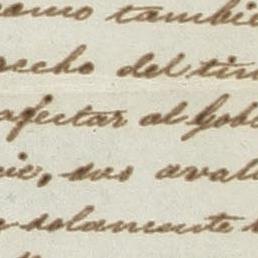 como tambie
echo del tim
afectar al Gob
cie, sus aval
solamente